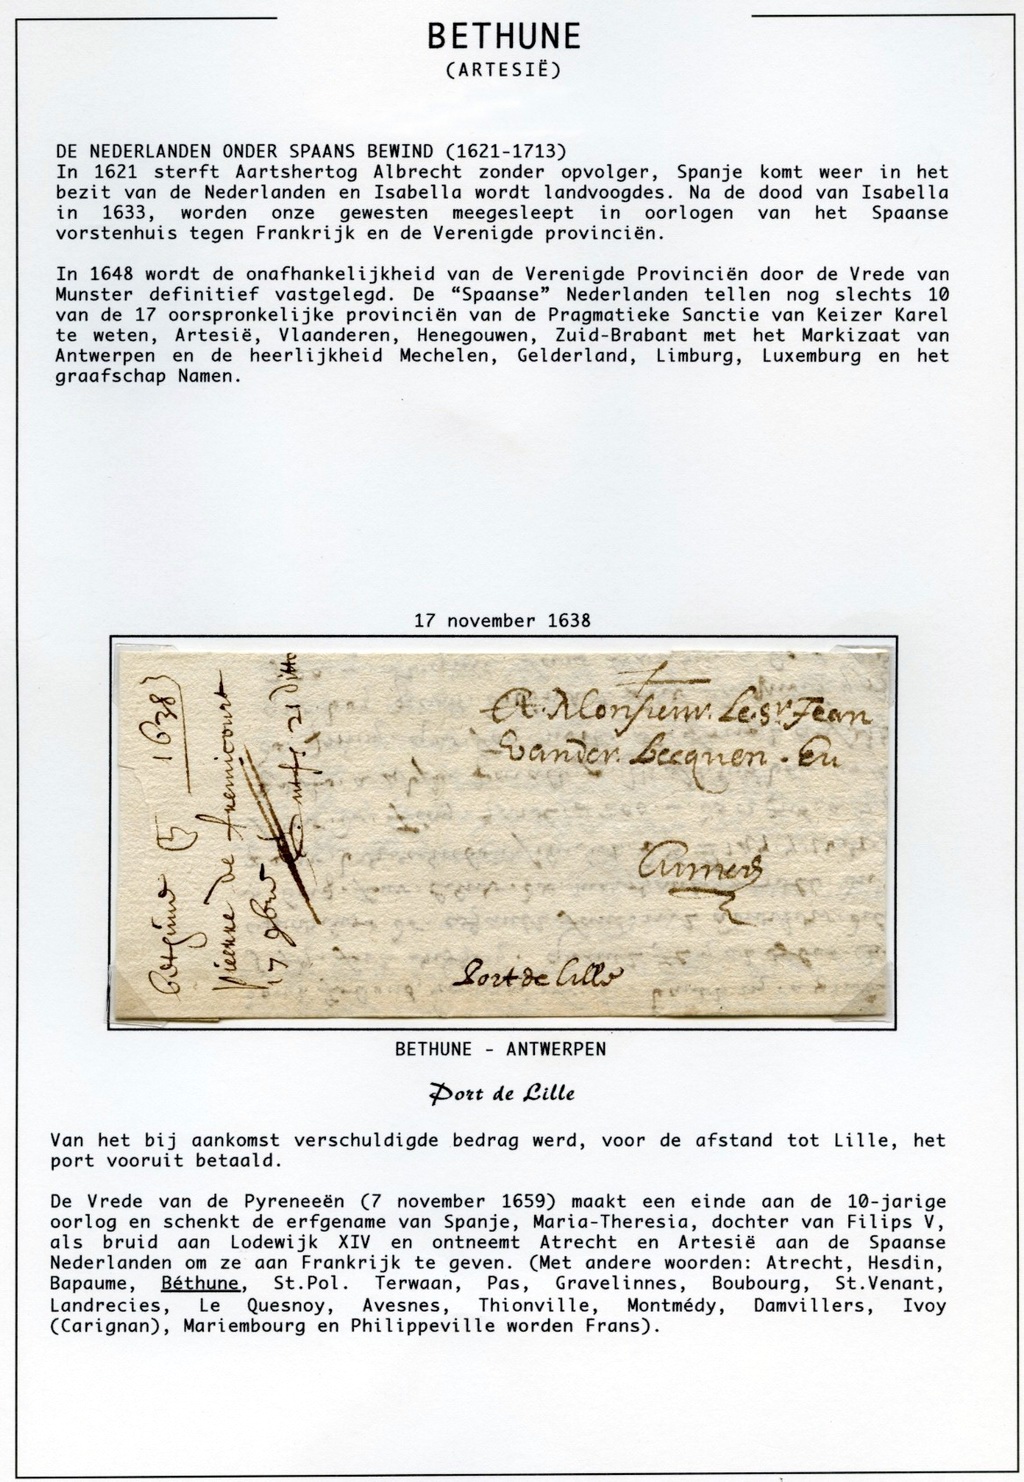 BETHUNE
(ARTESIË)
DE NEDERLANDEN ONDER SPAANS BEWIND (1621-1713)
In 1621 sterft Aartshertog Albrecht zonder opvolger, Spanje komt weer in het
bezit van de Nederlanden en Isabella wordt landvoogdes. Na de dood van Isabella
in 1633, worden onze gewesten meegesleept in oorlogen van het Spaanse
vorstenhuis tegen Frankrijk en de Verenigde provinciën.
In 1648 wordt de onafhankelijkheid van de Verenigde Provinciën door de Vrede van
Munster definitief vastgelegd. De “Spaanse” Nederlanden tellen nog slechts 10
van de 17 oorspronkelijke provinciën van de Pragmatieke Sanctie van Keizer Karel
te weten, Artesië, Vlaanderen, Henegouwen, Zuid-Brabant met het Markizaat van
Antwerpen en de heerlijkheid Mechelen, Gelderland, Limburg, Luxemburg en het
graafschap Namen.
17 november 1638
1638
pierre de
17 9bre
21 ditto
A Monsieur Le Sr Jean
Vander Becquen. En
Anvers
Port de Lille
BETHUNE - ANTWERPEN
Port de Lille
Van het bij aankomst verschuldigde bedrag werd, voor de afstand tot Lille, het
port vooruit betaald.
De Vrede van de Pyreneeën (7 november 1659) maakt een einde aan de 10-jarige
oorlog en schenkt de erfgename van Spanje, Maria-Theresia, dochter van Filips V,
als bruid aan Lodewijk XIV en ontneemt Atrecht en Artesië aan de Spaanse
Nederlanden om ze aan Frankrijk te geven. (Met andere woorden: Atrecht, Hesdin,
Bapaume, Béthune, St.Pol. Terwaan, Pas, Gravelinnes, Boubourg, St.Venant,
Landrecies, Le Quesnoy, Avesnes, Thionville, Montmédy, Damvillers, Ivoy
(Carignan), Mariembourg en Philippeville worden Frans).